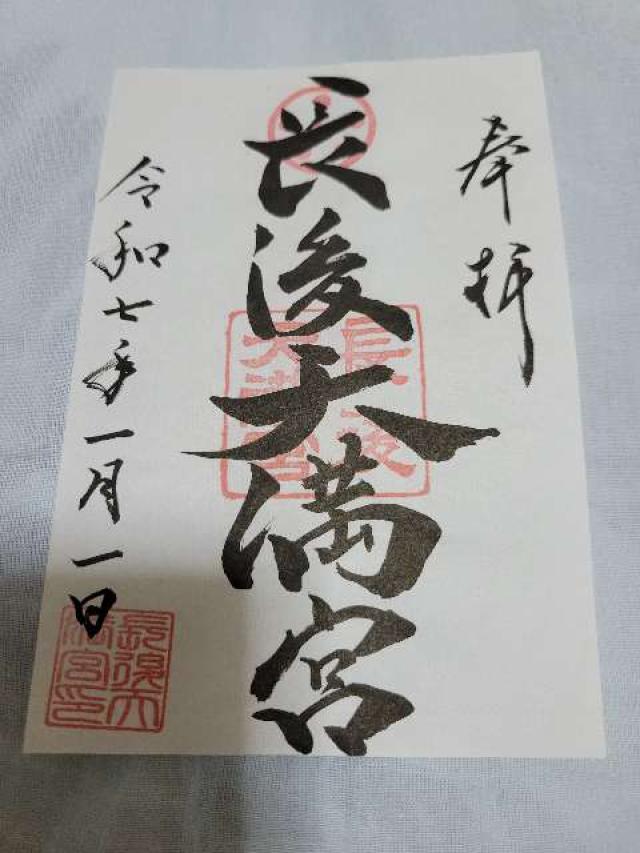 奉拝
長後天満宮
長後
天満宮
令和七年一月一日
長後天
満宮印